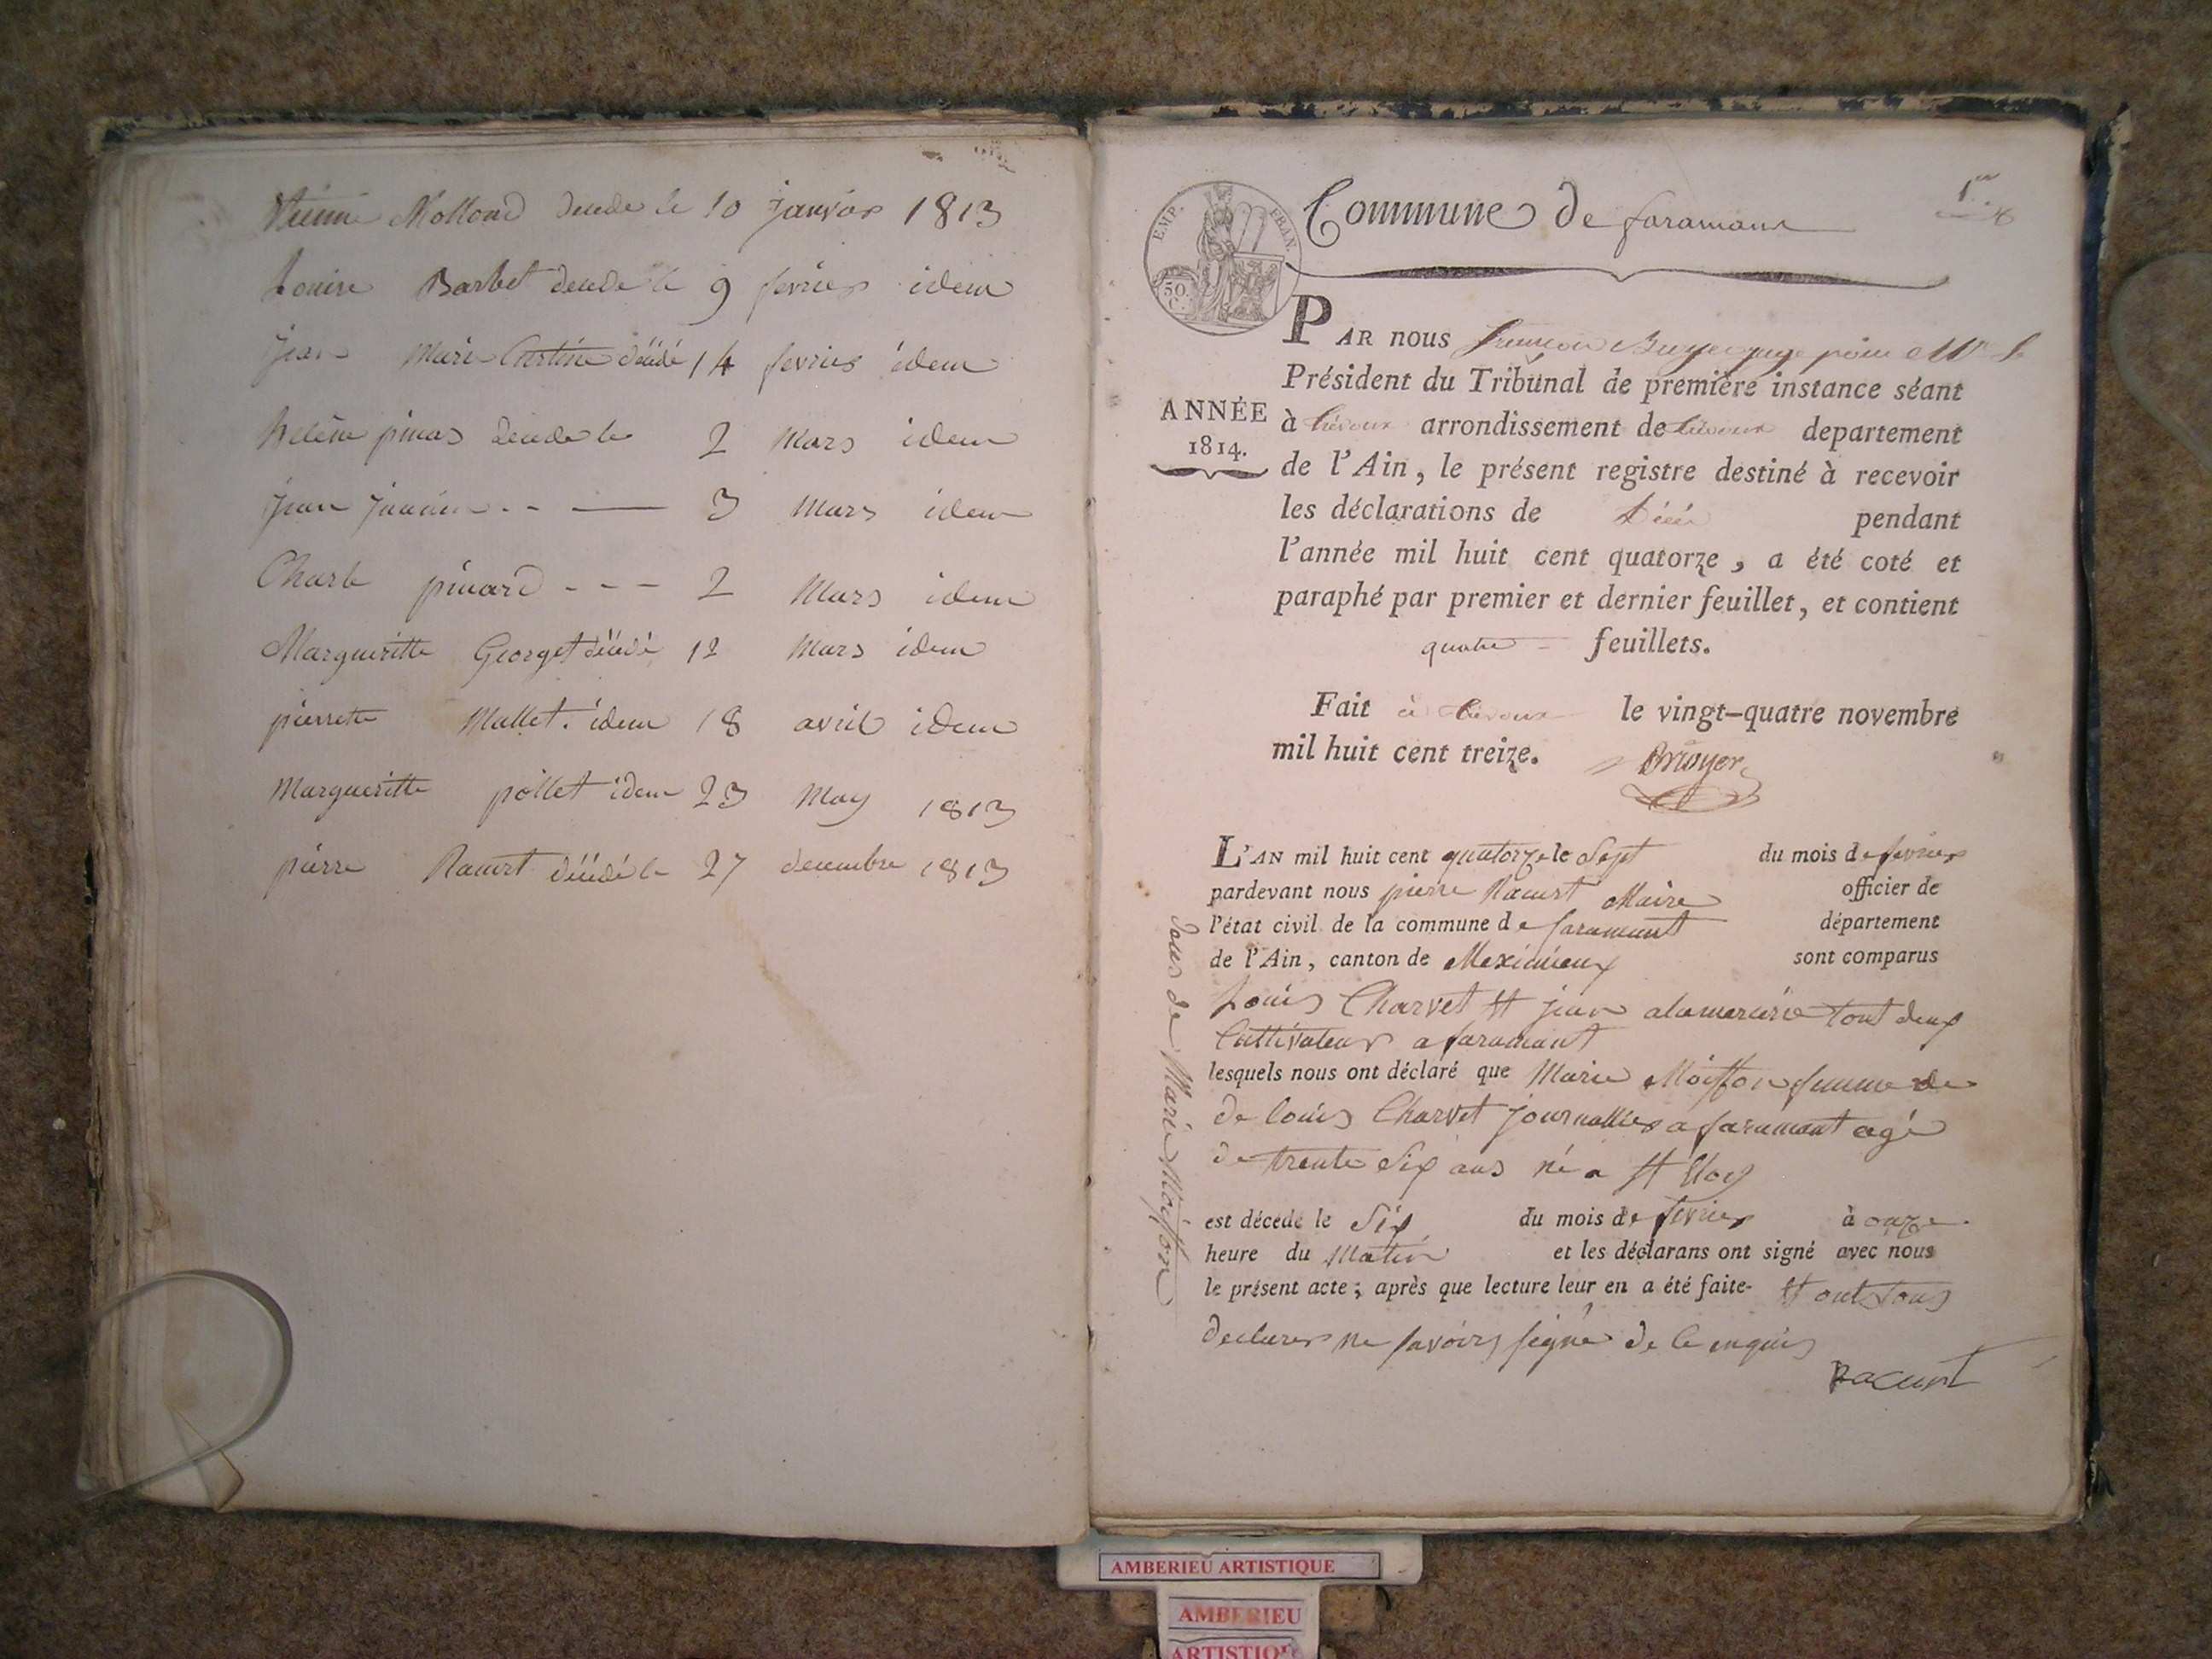 Mollond décédé le 10 janvier 1813
Louise Barbet décédé le 9 fevrier idem
jean Marie décédé 14 fevrier idem
helène décédé le 2 Mars idem
jean janin - - — 3 Mars idem
Charle pinard - - - 2 Mars idem
Margueritte Georget décédé 12 Mars idem
pierrette Mallet. idem 18 avril idem
Margueritte pollet idem 23 May 1813
pierre Racurt décédé le 27 decembre 1813
EMP. FRAN.
50 C.
Commune de faramant
1er
PAR nous juge pour Mr le
Président du Tribunal de première instance séant
ANNÉE
1814.
à trévoux arrondissement de trévoux departement
de l'Ain, le présent registre destiné à recevoir
les déclarations de Décés pendant
l'année mil huit cent quatorze, a été coté et
paraphé par premier et dernier feuillet, et contient
quatre feuillets.
Fait à trévoux le vingt-quatre novembre
mil huit cent treize. Bruyer
L'AN mil huit cent quatorze le Sept du mois de fevrier
pardevant nous pierre Racurt Maire officier de
l'état civil de la commune de faramant département
de l'Ain, canton de Meximieux sont comparus
Louis Charvet et jean alamercerie tout deux
Cultivateur a faramant
lesquels nous ont déclaré que Marie Moiffon femme de
de louis Charvet journallier a faramant agé
de trente Six ans né a St Eloy
est décedé le Six du mois de fevrier à onze
heure du Matin et les déclarans ont signé avec nous
le présent acte; après que lecture leur en a été faite. et ont tous
declarer ne savoir signé de ce enquis
Racurt
de Marie Moiffon
AMBERIEU ARTISTIQUE
AMBERIEU
ARTISTIQUE